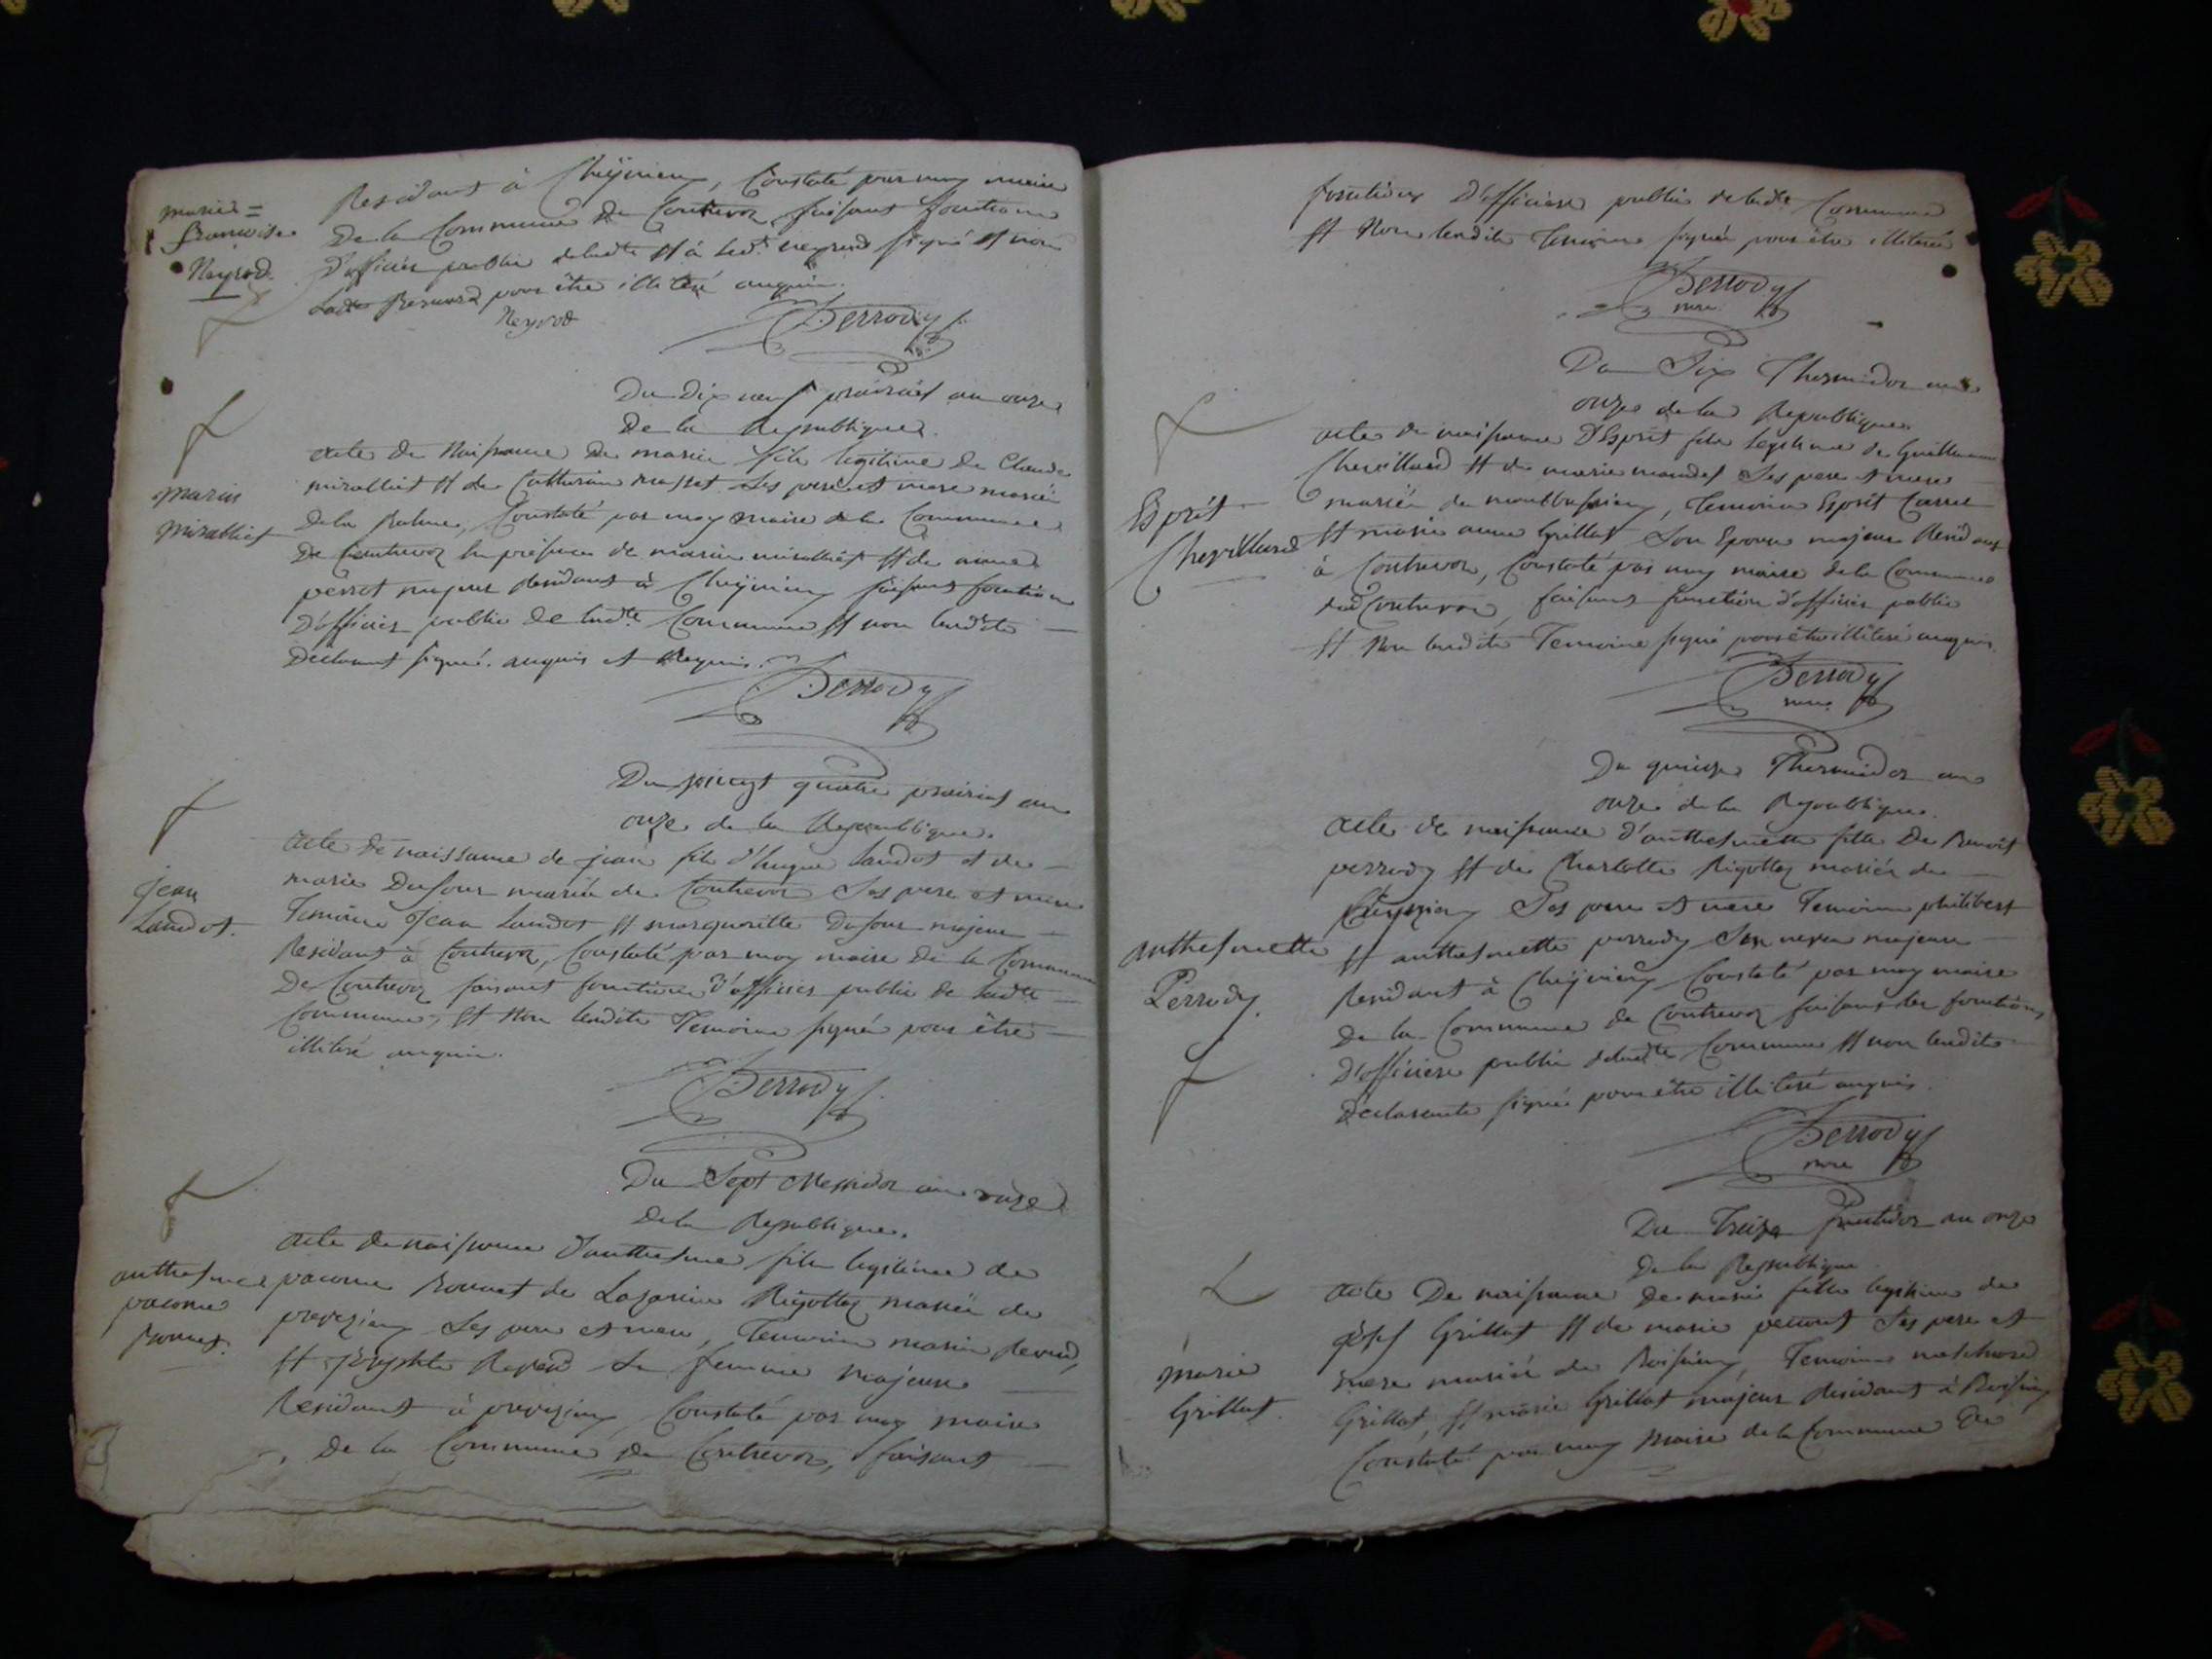 marie=
francoise
Neyrod.
Residant à Cheÿnieu, Constaté par moy maire
De la Commune de Contrevoz faisant fonctions
D'officier public deladte et à led. neyrod signé et non
Ladte pour être illiteré anquis.
Neyrod
Perrody
Du Dix neuf prairial an onze
De la Republique.
marin
miralliet
Acte de Naissance de marin fils legitime de Claude
miralliet et de Catherine masset Ses pere et mere mariés
de la Balme, Constaté par moy maire de la Commune
De Contrevoz En présence de marin miralliet et de anne
perret majeur Residant à Cheÿnieu faisant fonction
D'officier public de ladte Commune et non lesdits
Déclarant signé. anquis et Requis.
Perrody
Du vingt quatre prairial an
onze de la Republique.
Jean
Landot.
Acte de naissance de jean fils d'hugue Landot et de
marie Dufour mariés de Contrevoz Ses pere et mere
Temoins Jean Landot et marguerite Dufour majeur
Residant à Contrevoz, Constaté par moy maire de la Commune
De Contrevoz faisant fonctions d'officier public de ladte
Commune, et Non lesdits Temoins signés pour être
illiteré anquis.
Perrody
Du Sept Messidor an onze
de la Republique.
anthelme
pacome
Bonnet.
Acte de naissance d'anthelme fils legitime de
pacome Bonnet de Lazarine Rigolloz mariés de
preveyzieu Ses pere et mere, Temoins marin
et josephte Sa femme majeure
Residant à preveyzieu, Constaté par moy maire
De la Commune de Contrevoz, faisant
fonctions D'officier public de ladte Commune
et Non lesdits Temoins signés pour être illiteré
Perrody
mre
Du Six Thermidor an
onze de la Republique.
Esprit
Chevillard
Acte de naissance D'Esprit fils legitime de Guillaume
Chevillard et de marie mandel Ses pere et mere
mariés de montbressieu, Temoins Esprit Carrel
et marie anne Grillat Son Epouse majeur Residant
à Contrevoz, Constaté par moy maire de la Commune
dud Contrevoz, faisant fonction d'officier public
et Non lesdits Temoins signé pour être illiteré anquis.
Perrody
mre
Du quinze Thermidor an
onze de la Republique.
anthelmette
Perrody.
Acte de naissance d'anthelmette fille De Benoît
perrody et de Charlotte Rigolloz mariés de
Cheÿnieu Ses pere et mere Temoins philibert
et anthelmette perrody majeur
Residant à Cheÿnieu Constaté par moy maire
De la Commune de Contrevoz faisant les fonctions
D'officier public deladte Commune et non lesdits
Declarants signés pour être illiteré anquis.
Perrody
mre
Du Treize fructidor an onze
De la Republique
marie
Grillat.
Acte De naissance De marie fille legitime de
josef Grillat et de marie Ses pere et
mere mariés de Boissieu, Temoins melchior
Grillat, et marie Grillat majeur Residant à Boissieu
Constaté par moy Maire de la Commune De